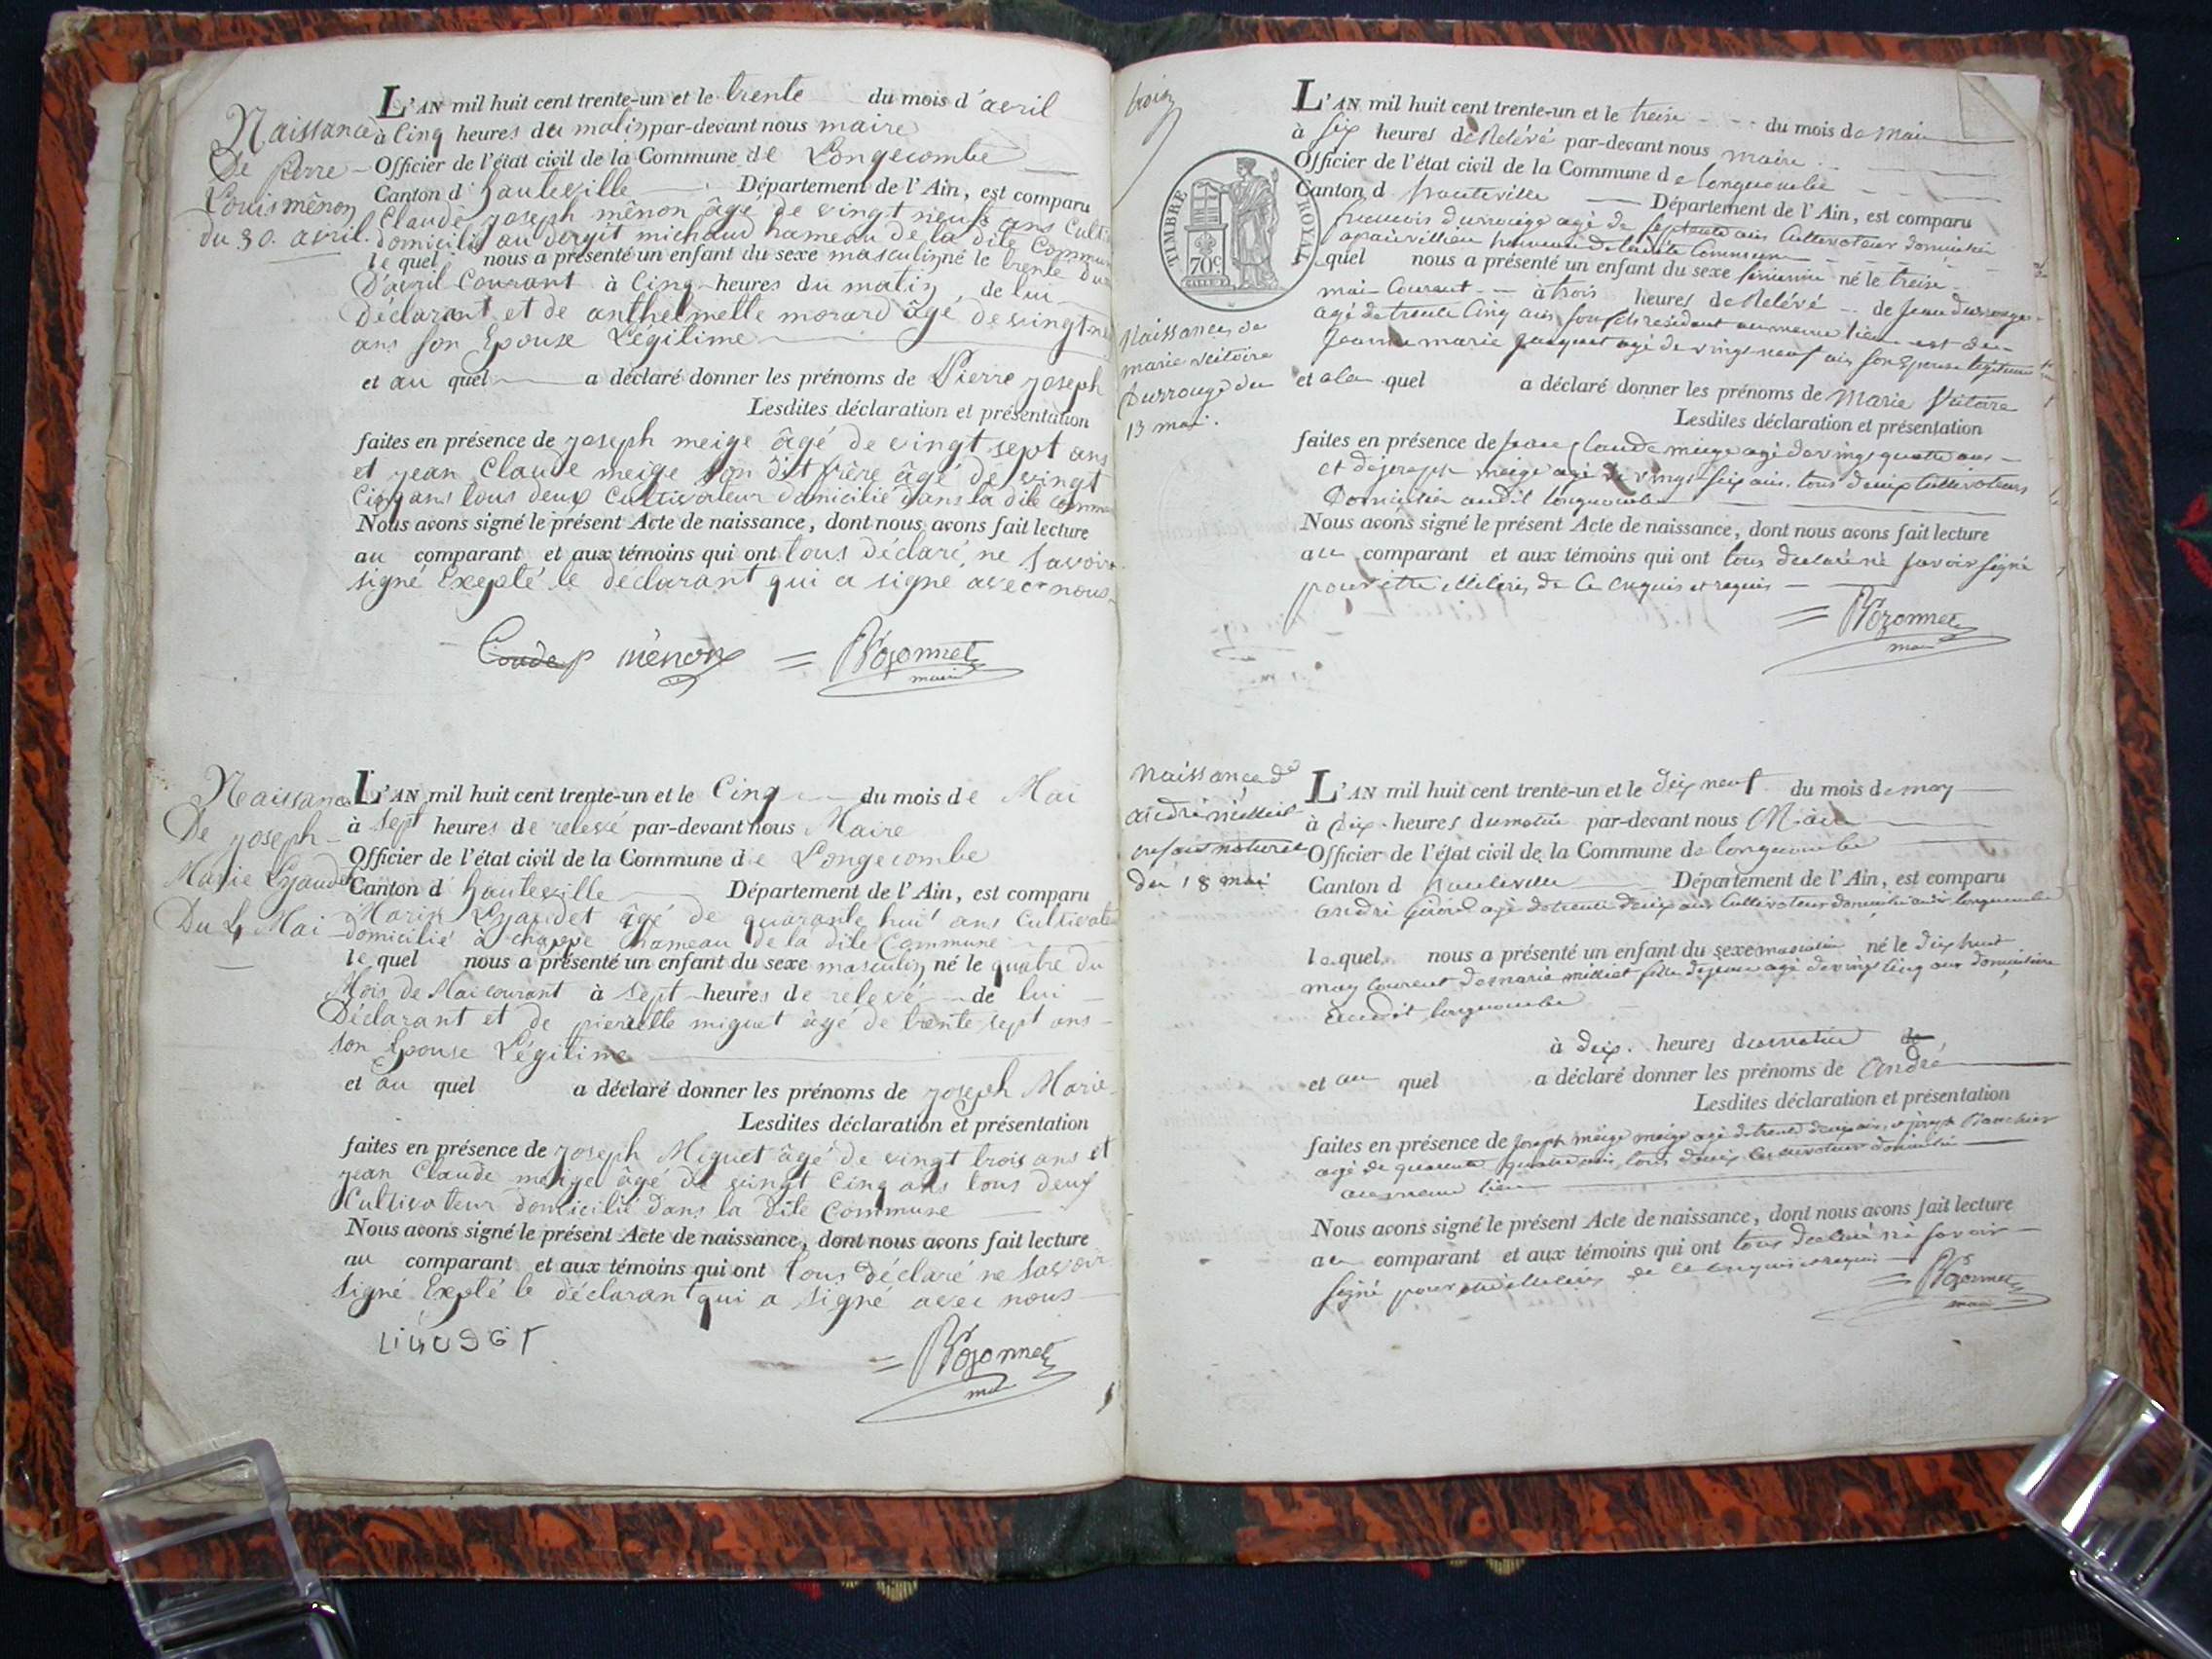 Naissance
De Pierre
Louis mênon
du 30. avril.
L'AN mil huit cent trente-un et le trente du mois d'avril
à Cinq heures du matin par-devant nous maire
Officier de l'état civil de la Commune de Longecombe
Canton d'hauteville Département de l'Ain, est comparu
Claude joseph mênon âgé de vingt neuf ans Culti
domicilié au dergit michaud hameau de la dite Commun
le quel nous a présenté un enfant du sexe masculin né le trente du
d'avril Courant à Cinq heures du matin de lui
Déclarant et de anthelmette morard âgé de vingt
ans son Epouse Légitime
et au quel a déclaré donner les prénoms de Pierre joseph
Lesdites déclaration et présentation
faites en présence de joseph meige âgé de vingt sept ans
et jean Claude meige son dit frère âgé de vingt
Cinq ans tous deux Cultivateur domicilié dans la dite comme
Nous avons signé le présent Acte de naissance, dont nous avons fait lecture
au comparant et aux témoins qui ont tous déclaré, ne savoir
signé Exepté le déclarant qui a signé avec nous
mênon = Rozonnet
maire
Naissance
De joseph
Marie Lyaudet
Du 4 Mai
L'AN mil huit cent trente-un et le Cinq du mois de Mai
à sept heures de relevé par-devant nous Maire
Officier de l'état civil de la Commune de Longecombe
Canton d'hauteville Département de l'Ain, est comparu
Marin Lyaudet âgé de quarante huit ans Cultivate
domicilié à chappe hameau de la dite Commune
le quel nous a présenté un enfant du sexe masculin né le quatre du
Mois de Mai courant à sept heures de relevé de lui
Déclarant et de pierrette miguet âgé de trente sept ans
son Epouse Légitime
et au quel a déclaré donner les prénoms de joseph Marie
Lesdites déclaration et présentation
faites en présence de joseph Miguet âgé de vingt trois ans et
jean Claude meige âgé de vingt Cinq ans tous deux
Cultivateur domicilié dans la dite Commune
Nous avons signé le présent Acte de naissance, dont nous avons fait lecture
au comparant et aux témoins qui ont tous déclaré ne savoir
signé Expté le déclarant qui a signé avec nous
= Rozonnet
TIMBRE ROYAL
70c
Naissance de
marie victoire
Durrouge du
13 mai.
L'AN mil huit cent trente-un et le treise du mois de mai
à six heures de Relévé par-devant nous maire
Officier de l'état civil de la Commune de longecombe
Canton d hauteville Département de l'Ain, est comparu
francois durrouge agé de septente ans Cultivateur domicilié
hameau de la dite Commune
quel nous a présenté un enfant du sexe féminin né le treise
mai Courant à trois heures de Relévé de Jean durrouge
agé de trente Cinq ans son fils résidant au meme lieu et de
Jeanne marie jacquet agé de vingt neuf ans son Epouse légitime
et a la quel a déclaré donner les prénoms de Marie Victoire
Lesdites déclaration et présentation
faites en présence de Jean Claude meige agé de vingt quatre ans
et de joseph meige agé de vingt six ans. tous deux Cultivateurs
Domicilié audit longecombe
Nous avons signé le présent Acte de naissance, dont nous avons fait lecture
au comparant et aux témoins qui ont tous declaré ne savoir signé
pour être illiterés de ce enquis et requis
= Rozonnet
maire
naissance de
andré milliet
enfant naturel
du 18 mai
L'AN mil huit cent trente-un et le dix neuf du mois de may
à dix heures du matin par-devant nous Maire
Officier de l'état civil de la Commune de longecombe
Canton d hauteville Département de l'Ain, est comparu
andré Girod agé de trente deux ans Cultivateur domicilié longecombe
le quel nous a présenté un enfant du sexe masculin né le dix huit
may Courent de marie milliet fille de jean agé de vingt Cinq ans domiciliée
audit longecombe
à dix heures du matin de
et au quel a déclaré donner les prénoms de André
Lesdites déclaration et présentation
faites en présence de joseph meige meige agé de trente deux ans, et joseph
agé de quarante quatre ans, tous deux Cultivateur domicilié
au meme lieu
Nous avons signé le présent Acte de naissance, dont nous avons fait lecture
au comparant et aux témoins qui ont tous declaré ne savoir
signé pour illiterés de ce enquis et requis
= Rozonnet
maire